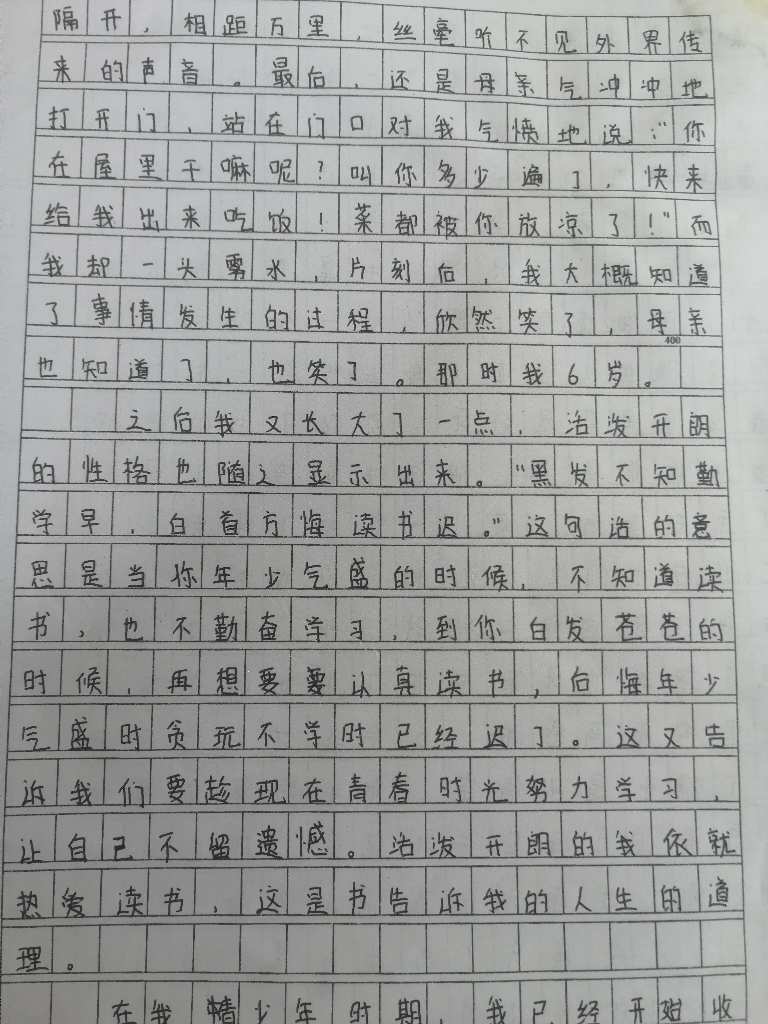 隔开，相距万里，丝毫听不见外界传
来的声音。最后，还是母亲气冲冲地
打开门，站在门口对我气愤地说："你
在屋里干嘛呢？叫你多少遍了，快来
给我出来吃饭！菜都被你放凉了！"而
我却一头雾水，片刻后，我大概知道
了事情发生的过程，欣然笑了，母亲
400
也知道了，也笑了。那时我6岁。
之后我又长大了一点，活泼开朗
的性格也随之显示出来。"黑发不知勤
学早，白首方悔读书迟。"这句话的意
思是当你年少气盛的时候，不知道读
书，也不勤奋学习，到你白发苍苍的
时候，再想要要认真读书，后悔年少
气盛时贪玩不学时已经迟了。这又告
诉我们要趁现在青春时光努力学习，
让自己不留遗憾。活泼开朗的我依就
热爱读书，这是书告诉我的人生的道
理。
在我情少年时期，我已经开始收